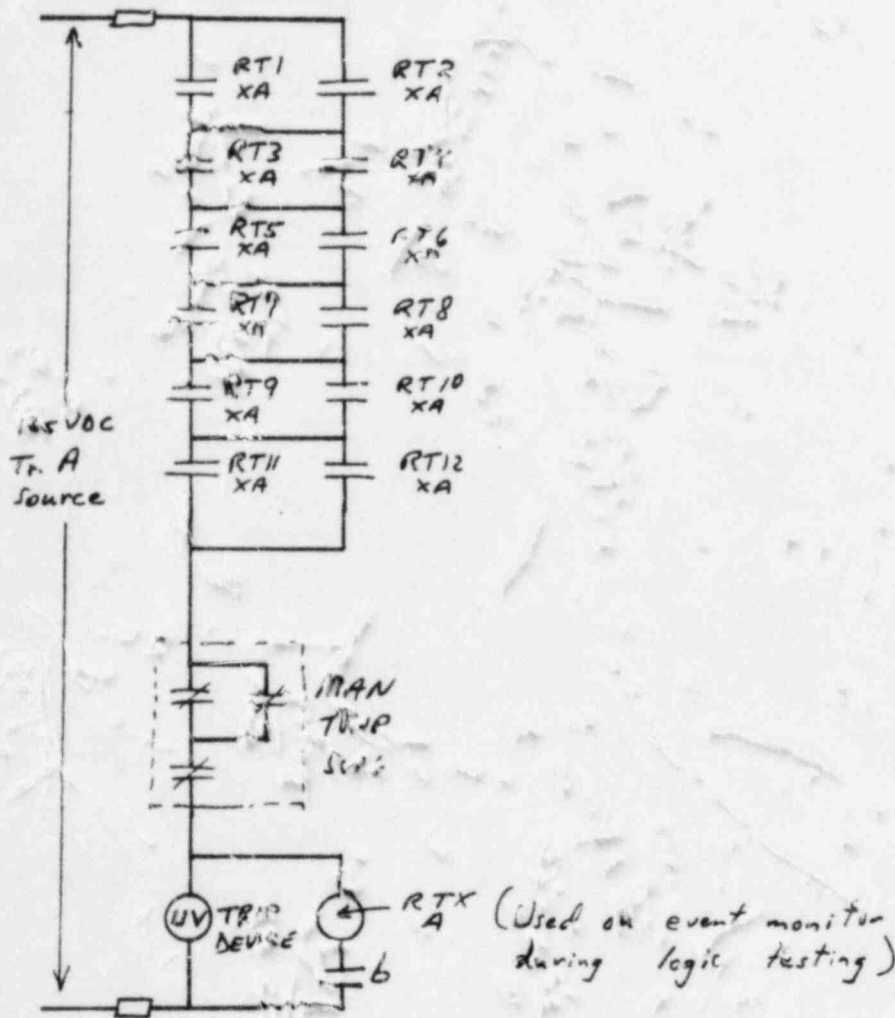 RT1
XA
RT2
XA
RT3
XA
XA
RT5
XA
XA
RT8
XA
RT9
XA
RT10
XA
RT11
XA
RT12
XA
VDC
Tr. A
Source
MAN
UV
TRIP
DEVICE
RTX
A
(Used on event monitor
during logic testing)
b